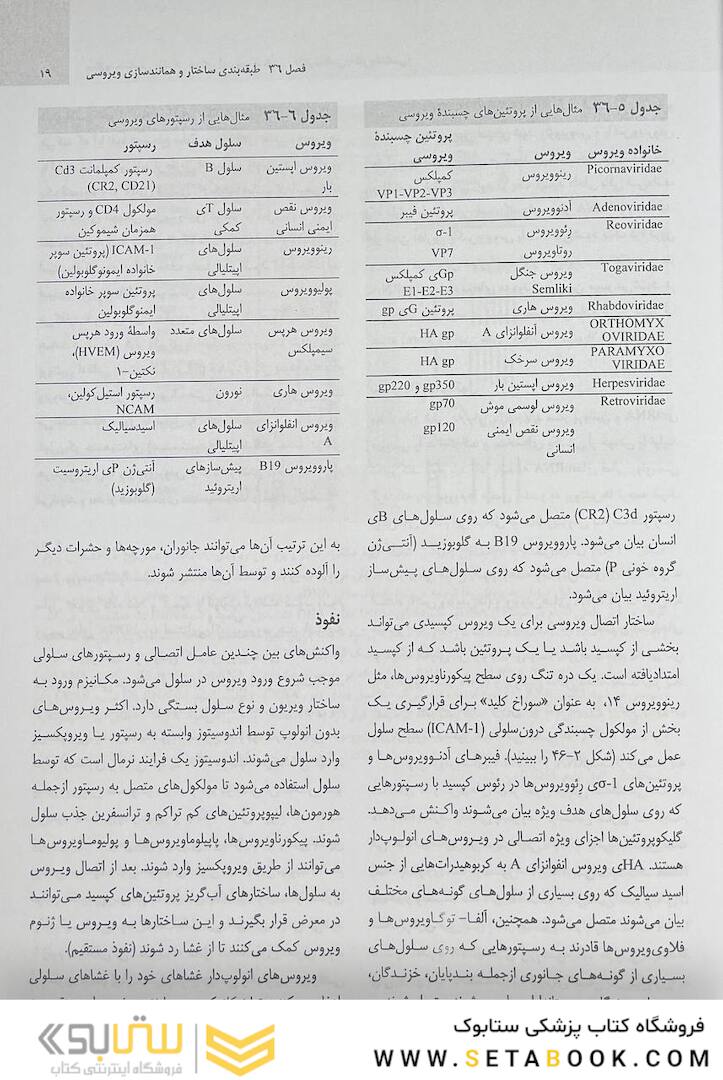 فصل ۳۶ طبقه‌بندی ساختار و همانندسازی ویروسی ۱۹
جدول ۵-۳۶ مثال‌هایی از پروتئین‌های چسبندهٔ ویروسی
خانواده ویروس ویروس پروتئین چسبندهٔ ویروسی
Picornaviridae رینوویروس کمپلکس
VP1-VP2-VP3
Adenoviridae آدنوویروس پروتئین فیبر
Reoviridae رئوویروس σ-1
روتاویروس VP7
Togaviridae ویروس جنگل Gpی کمپلکس
Semliki E1-E2-E3
Rhabdoviridae ویروس هاری پروتئین Gی gp
ORTHOMYX
OVIRIDAE ویروس آنفلوانزای A HA gp
PARAMYXO
VIRIDAE ویروس سرخک HA gp
Herpesviridae ویروس اپستین بار gp350 و gp220
Retroviridae ویروس لوسمی موش gp70
ویروس نقص ایمنی gp120
انسانی
رسپتور CR2) C3d) متصل می‌شود که روی سلول‌های Bی
انسان بیان می‌شود. پاروویروس B19 به گلوبوزید (آنتی‌ژن
گروه خونی P) متصل می‌شود که روی سلول‌های پیش‌ساز
اریتروئید بیان می‌شود.
ساختار اتصال ویروسی برای یک ویروس کپسیدی می‌تواند
بخشی از کپسید باشد یا یک پروتئین باشد که از کپسید
امتدادیافته است. یک دره تنگ روی سطح پیکورناویروس‌ها، مثل
رینوویروس ۱۴، به عنوان «سوراخ کلید» برای قرارگیری یک
بخش از مولکول چسبندگی درون‌سلولی (ICAM-1) سطح سلول
عمل می‌کند (شکل ۲-۴۶ را ببینید). فیبرهای آدنوویروس‌ها و
پروتئین‌های σ-1ی رئوویروس‌ها در رئوس کپسید با رسپتورهایی
که روی سلول‌های هدف ویژه بیان می‌شوند واکنش می‌دهد.
گلیکوپروتئین‌ها اجزای ویژه اتصالی در ویروس‌های انولوپ‌دار
هستند. HAی ویروس انفوانزای A به کربوهیدرات‌هایی از جنس
اسید سیالیک که روی بسیاری از سلول‌های گونه‌های مختلف
بیان می‌شوند متصل می‌شود. همچنین، آلفا- توگاویروس‌ها و
فلاوی‌ویروس‌ها قادرند به رسپتورهایی که روی سلول‌های
بسیاری از گونه‌های جانوری ازجمله بندپایان، خزندگان،
جدول ۶-۳۶ مثال‌هایی از رسپتورهای ویروسی
ویروس سلول هدف رسپتور
ویروس اپستین سلول B رسپتور کمپلمانت Cd3
بار (CR2, CD21)
ویروس نقص سلول Tی مولکول CD4 و رسپتور
ایمنی انسانی کمکی همزمان شیموکین
رینوویروس سلول‌های ICAM-1 (پروتئین سوپر
اپیتلیالی خانواده ایمونوگلوبولین)
پولیوویروس سلول‌های پروتئین سوپر خانواده
اپیتلیالی ایمنوگلوبولین
ویروس هرپس سلول‌های متعدد واسطهٔ ورود هرپس
سیمپلکس ویروس (HVEM)،
نکتین-۱
ویروس هاری نورون رسپتور استیل‌کولین،
NCAM
ویروس انفلوانزای سلول‌های اسیدسیالیک
A اپیتلیالی
پاروویروس B19 پیش‌سازهای آنتی‌ژن Pی اریتروسیت
اریتروئید (گلوبوزید)
به این ترتیب آن‌ها می‌توانند جانوران، مورچه‌ها و حشرات دیگر
را آلوده کنند و توسط آن‌ها منتشر شوند.
نفوذ
واکنش‌های بین چندین عامل اتصالی و رسپتورهای سلولی
موجب شروع ورود ویروس در سلول می‌شود. مکانیزم ورود به
ساختار ویریون و نوع سلول بستگی دارد. اکثر ویروس‌های
بدون انولوپ توسط اندوسیتوز وابسته به رسپتور یا ویروپکسیز
وارد سلول می‌شوند. اندوسیتوز یک فرایند نرمال است که توسط
سلول استفاده می‌شود تا مولکول‌های متصل به رسپتور ازجمله
هورمون‌ها، لیپوپروتئین‌های کم تراکم و ترانسفرین جذب سلول
شوند. پیکورناویروس‌ها، پاپیلوماویروس‌ها و پولیوماویروس‌ها
می‌توانند از طریق ویروپکسیز وارد شوند. بعد از اتصال ویروس
به سلول‌ها، ساختارهای آب‌گریز پروتئین‌های کپسید می‌توانند
در معرض قرار بگیرند و این ساختارها به ویروس یا ژنوم
ویروس کمک می‌کنند تا از غشا رد شوند (نفوذ مستقیم).
ویروس‌های انولوپ‌دار غشاهای خود را با غشاهای سلولی
فروشگاه کتاب پزشکی ستابوک
WWW.SETABOOK.COM
ستابوک
فروشگاه اینترنتی کتاب